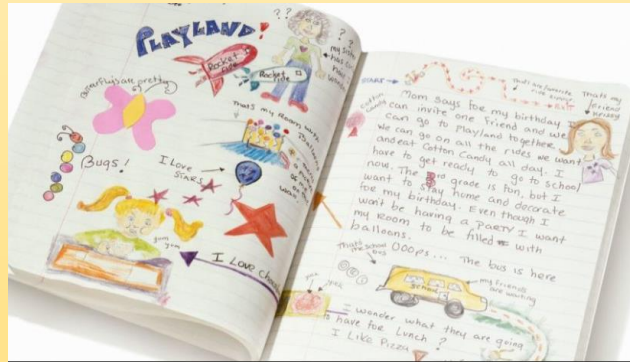 PLAYLAND!
? ?
Rocket
ride
Rocket
ride
? ?
my sister
has
hair
butterflys are pretty
that's my room with
Balloons
Bugs!
I LOVE
STARS
yum
yum
I LOVE
START
that's my favorite
ride
That's my
friend
cotton
candy
Mom says for my birthday
I can invite one friend and we
can go to Playland together.
We can go on all the rides we want
and eat cotton candy all day. I
have to get ready to go to school
now. The 3rd grade is fun, but I
want to stay home and decorate
for my birthday. Even though I
won't be having a party I want
my room to be filled with
balloons.
OOOps... The bus is here
That's the school
bus
my friends
are waiting
School
I wonder what they are going
to have for Lunch?
I Like Pizza!